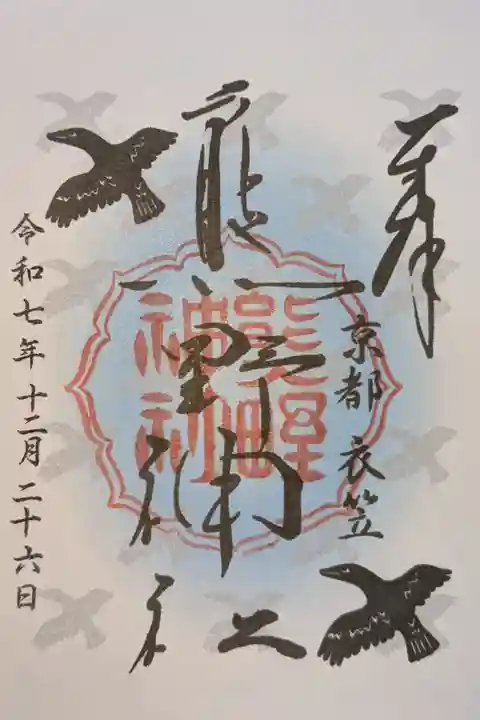 奉拝
京都 衣笠
熊野神社
熊野
神社
令和七年十二月二十六日